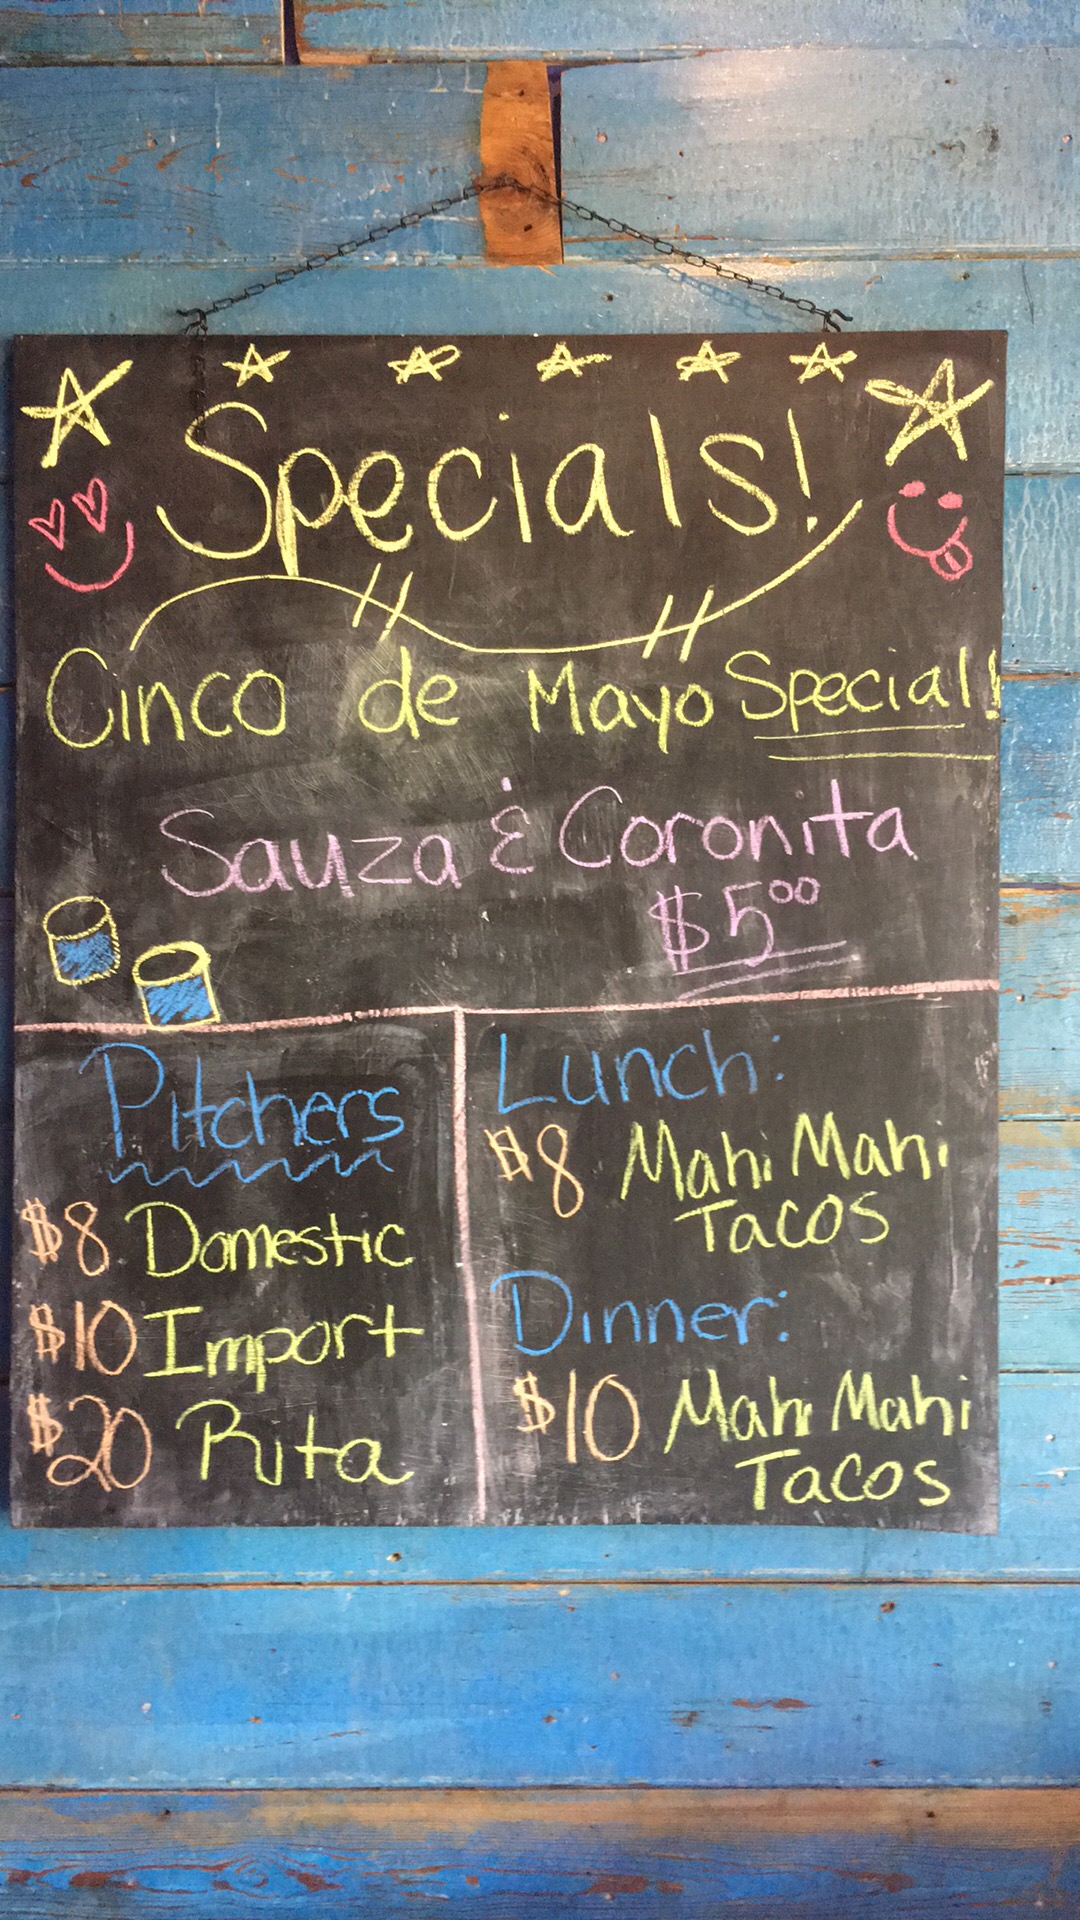 Specials!
Cinco de Mayo Special!
Sauza & Coronita
$5.00
Pitchers
$8 Domestic
$10 Import
$20 Rita
Lunch:
$8 Mahi Mahi
Tacos
Dinner:
$10 Mahi Mahi
Tacos